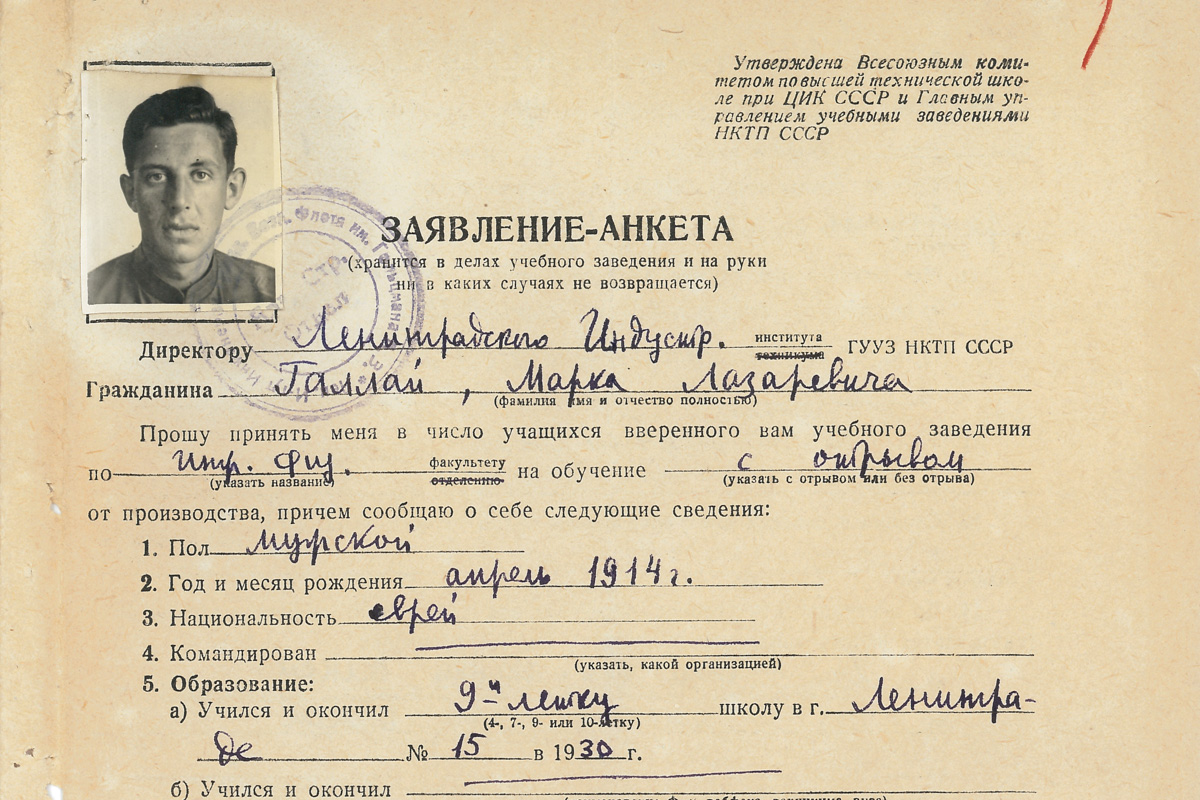 Утверждена Всесоюзным коми-
тетом по высшей технической шко-
ле при ЦИК СССР и Главным уп-
равлением учебными заведениями
НКТП СССР
ЗАЯВЛЕНИЕ-АНКЕТА
(хранится в делах учебного заведения и на руки
ни в каких случаях не возвращается)
Директору Ленинградского Индустр. института техникума ГУУЗ НКТП СССР
Гражданина Галлай, Марка Лазаревича
(фамилия имя и отчество полностью)
Прошу принять меня в число учащихся вверенного вам учебного заведения
по факультету отделению на обучение с отрывом
(указать название) (указать с отрывом или без отрыва)
от производства, причем сообщаю о себе следующие сведения:
1. Пол мужской
2. Год и месяц рождения апрель 1914 г.
3. Национальность еврей
4. Командирован
(указать, какой организацией)
5. Образование:
а) Учился и окончил 9-и летку школу в г. Ленингра-
(4-, 7-, 9- или 10-летку)
де № 15 в 1930 г.
б) Учился и окончил